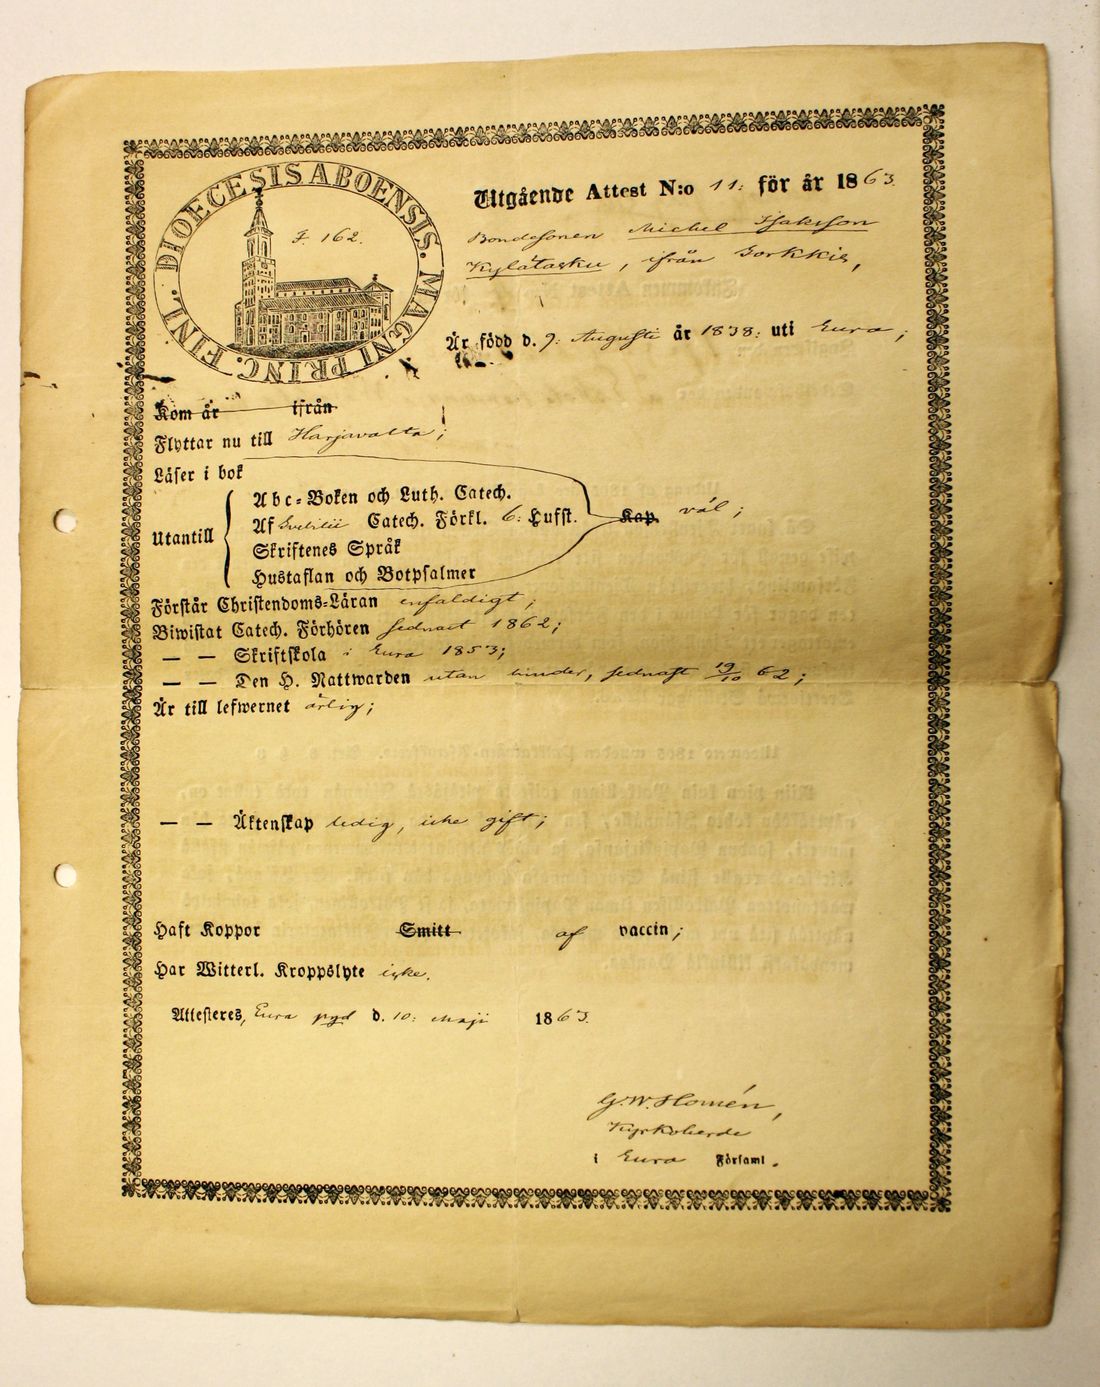 DIOECESIS ABOENSIS. MAGNI PRINC. FINL.
F. 162.
Utgående Attest N:o 11: för år 1863.
Bondesonen Michel Isaksson
Kylätasku, ifrån Sorkkis,
Är född d. 9: Augusti år 1838: uti Eura;
Kom år ifrån
Flyttar nu till Harjavalta;
Läser i bok
Utantill
Abc-Boken och Luth. Catech.
Af Svebilii Catech. Förkl. 6: Hufst. Kap. väl;
Skriftenes Språk
Hustaflan och Botpsalmer
Förstår Christendoms-Läran enfaldigt;
Biwistat Catech. Förhören sednast 1862;
— — Skriftskola i Eura 1853;
— — Den H. Nattwarden utan hinder, sednast 19/10 62;
Är till lefwernet ärlig;
— — Äktenskap ledig, icke gift;
Haft Koppor Smitt af vaccin;
Har Witterl. Kroppslyte icke.
Attesteres, Eura pgd d. 10: Maji 1863.
G. W. Homén,
Kyrkoherde
i Eura Församl.